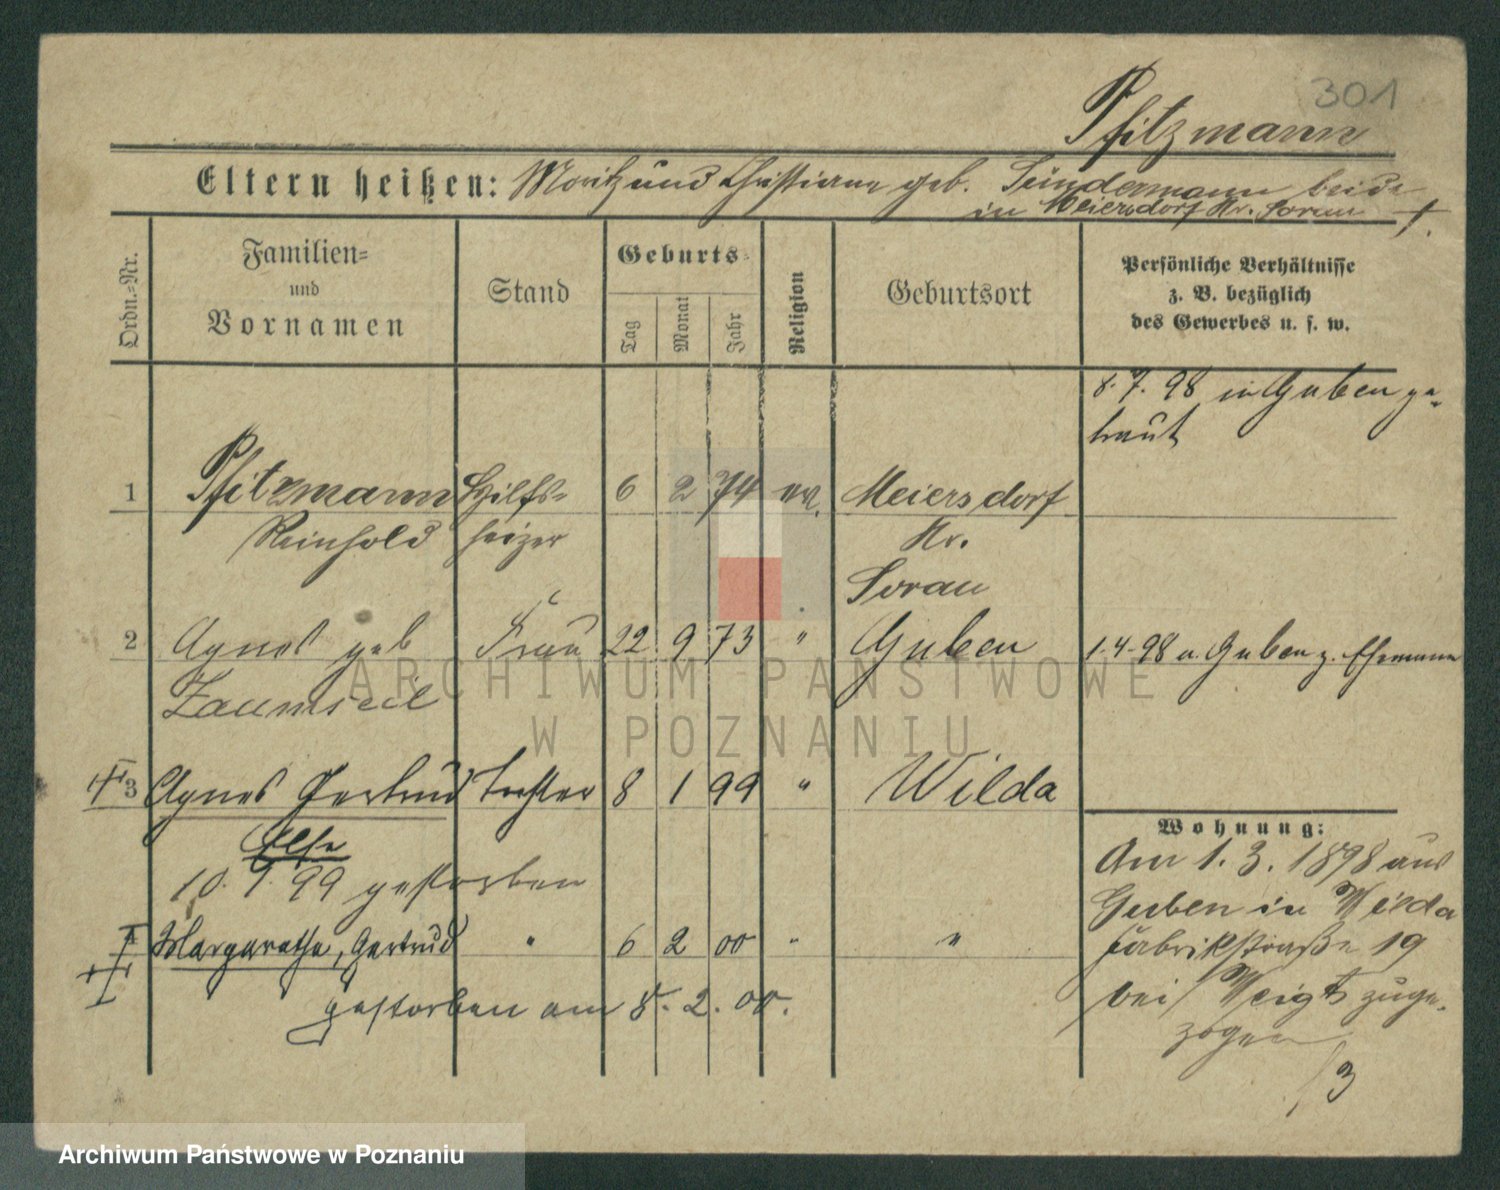 301
Pfitzmann
Eltern heißen: Moritz und Christiane geb. Sündermann beide
in Meiersdorf Kr. Sorau †.
Ordn.-Nr.
Familien-
und
Vornamen
Stand
Geburts-
Tag
Monat
Jahr
Religion
Geburtsort
Persönliche Verhältnisse
z. B. bezüglich
des Gewerbes u. s. w.
8. 7. 98 in Guben ge-
traut
1 Pfitzmann Hilfs- 6 2 74 ev. Meiersdorf
Reinhold heizer Kr.
Sorau
2 Agnes geb Frau 22 9 73 " Guben 1.4.98 v. Guben z. Ehemann
Zaumseil
† 3 Agnes Gertrud Tochter 8 1 99 " Wilda
Else
10. 9. 99 gestorben
Margarethe, Gertrud " 6 2 00 " "
gestorben am 8. 2. 00.
Wohnung:
Am 1. 3. 1898 aus
Guben in Wilda
Fabrikstraße 19
bei Weigt zuge-
zogen
/3
ARCHIWUM PAŃSTWOWE
W POZNANIU
Archiwum Państwowe w Poznaniu